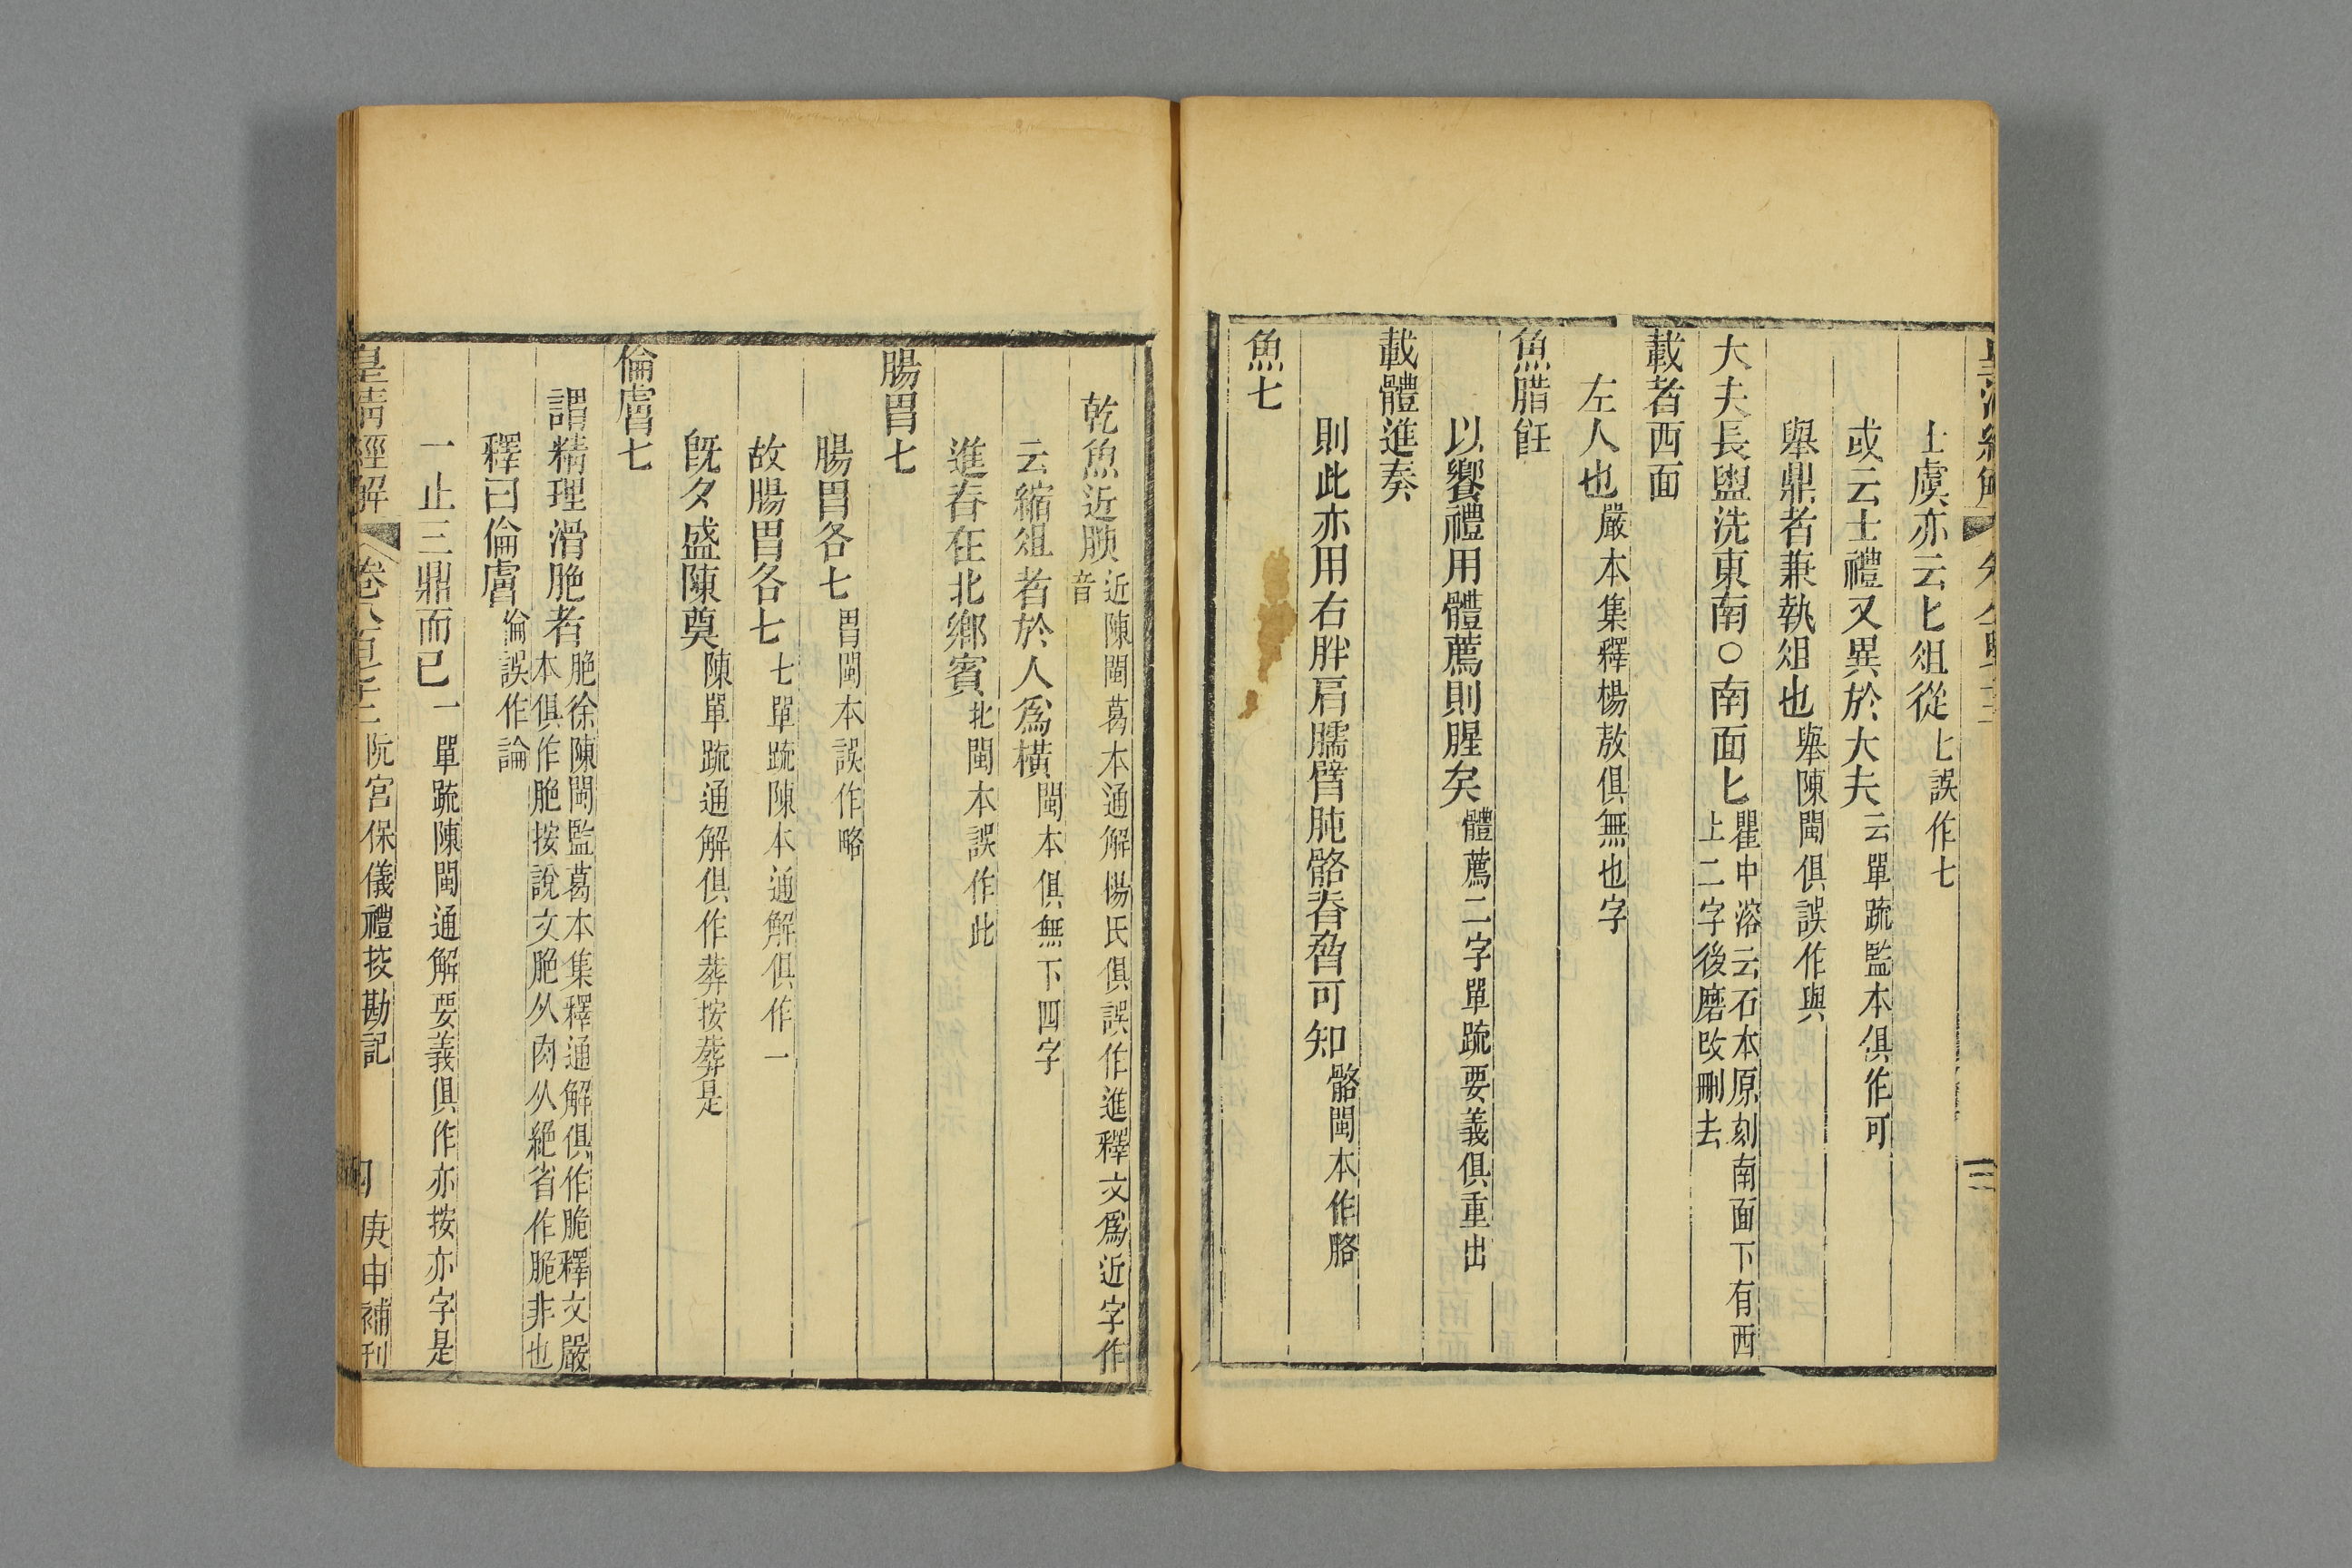 士虞亦云匕俎從匕誤作七
或云士禮又異於大夫云單䟽監本俱作可
舉鼎者兼執俎也舉陳閩俱誤作與
大夫長盥洗東南○南面匕瞿中溶云石本原刻南面下有西
上二字後磨改刪去
載者西面
左人也嚴本集釋楊敖俱無也字
魚腊飪
以饗禮用體薦則腥矣體薦二字單䟽要義俱重出
載體進奏
則此亦用右胖肩臑臂肫骼脊脅可知骼閩本作胳
魚七
乾魚近腴近陳閩葛本通解楊氏俱誤作進釋文爲近字作
音
云縮俎者於人爲橫閩本俱無下四字
進脊在北鄉賓北閩本誤作此
腸胃七
腸胃各七胃閩本誤作略
故腸胃各七七單䟽陳本通解俱作一
既夕盛陳奠陳單䟽通解俱作葬按葬是
倫膚七
謂精理滑脃者脃徐陳閩監葛本集釋通解俱作脆釋文嚴
本俱作脃按說文脃从肉从絕省作脆非也
釋曰倫膚倫誤作論
一止三鼎而已一單䟽陳閩通解要義俱作亦按亦字是
皇清經解 卷八百 阮宮保儀禮挍勘記 四 庚申補刊